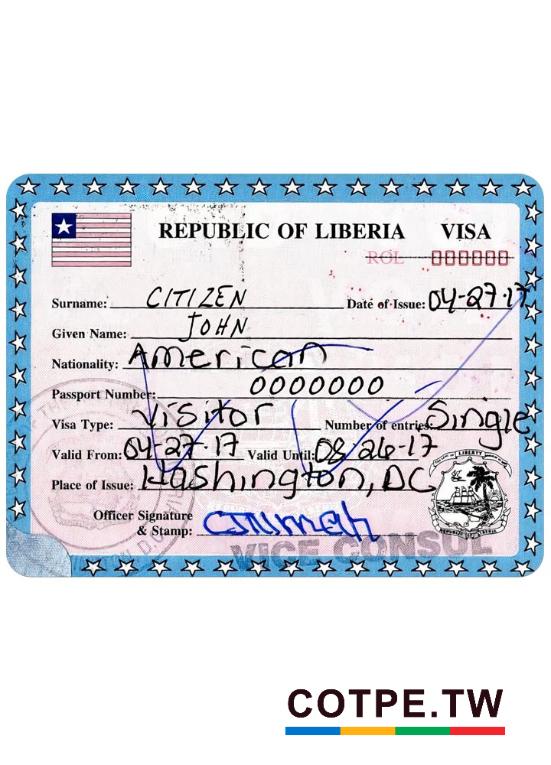 REPUBLIC OF LIBERIA VISA
ROL 000000
Surname: CITIZEN Date of Issue: 04-27-17
Given Name: JOHN
Nationality: American
Passport Number: 0000000
Visa Type: Visitor Number of entries: Single
Valid From: 04-27-17 Valid Until: 08-26-17
Place of Issue: Washington, DC
Officer Signature
& Stamp:
VICE CONSUL
COTPE.TW